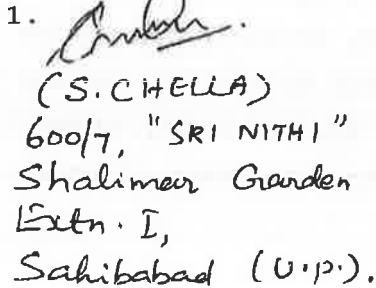 1.
(S. CHELLA)
600/7, "SRI NITHI"
Shalimar Garden
Extn. I,
Sahibabad (U.P.).